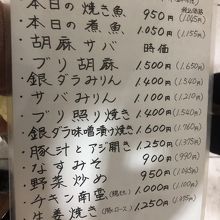 税込価格
本日の焼き魚 950円 (1.045円)
本日の煮魚 1.050円 (1.155円)
胡麻サバ 時価
ブリ胡麻 1.500円 (1.650円)
銀ダラみりん 1.400円 (1.540円)
サバみりん 1.100円 (1.210円)
ブリ照り焼き 1.400円 (1.540円)
銀ダラ味噌漬け焼き 1.600円 (1.760円)
豚汁とアジ開き 1.250円 (1.375円)
なすみそ 900円 (990円)
野菜炒め 950円 (1.045円)
チキン南蛮 1.000円 (1.100円)
生姜焼き 1.250円